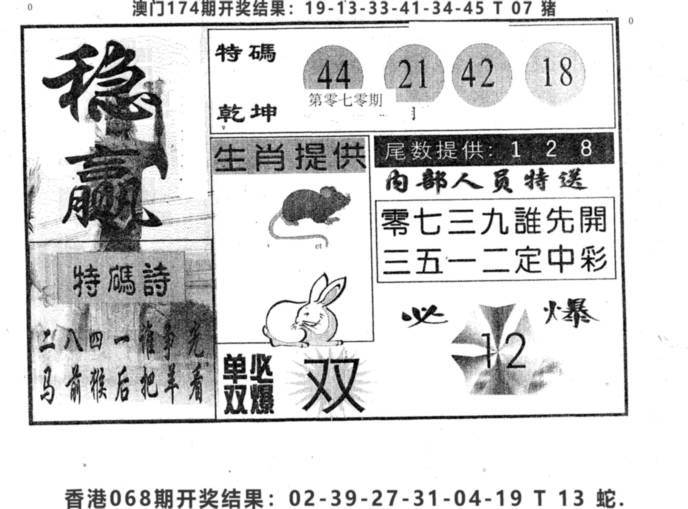 澳门174期开奖结果：19-13-33-41-34-45 T 07 猪
0
0
稳赢
特碼
乾坤
44 21 42 18
第零七零期
生肖提供
尾数提供: 1 2 8
内部人员特送
零七三九誰先開
三五一二定中彩
特碼詩
二八四一谁争光
马前猴后把羊看
必爆
12
单双
必爆
双
香港068期开奖结果：02-39-27-31-04-19 T 13 蛇.